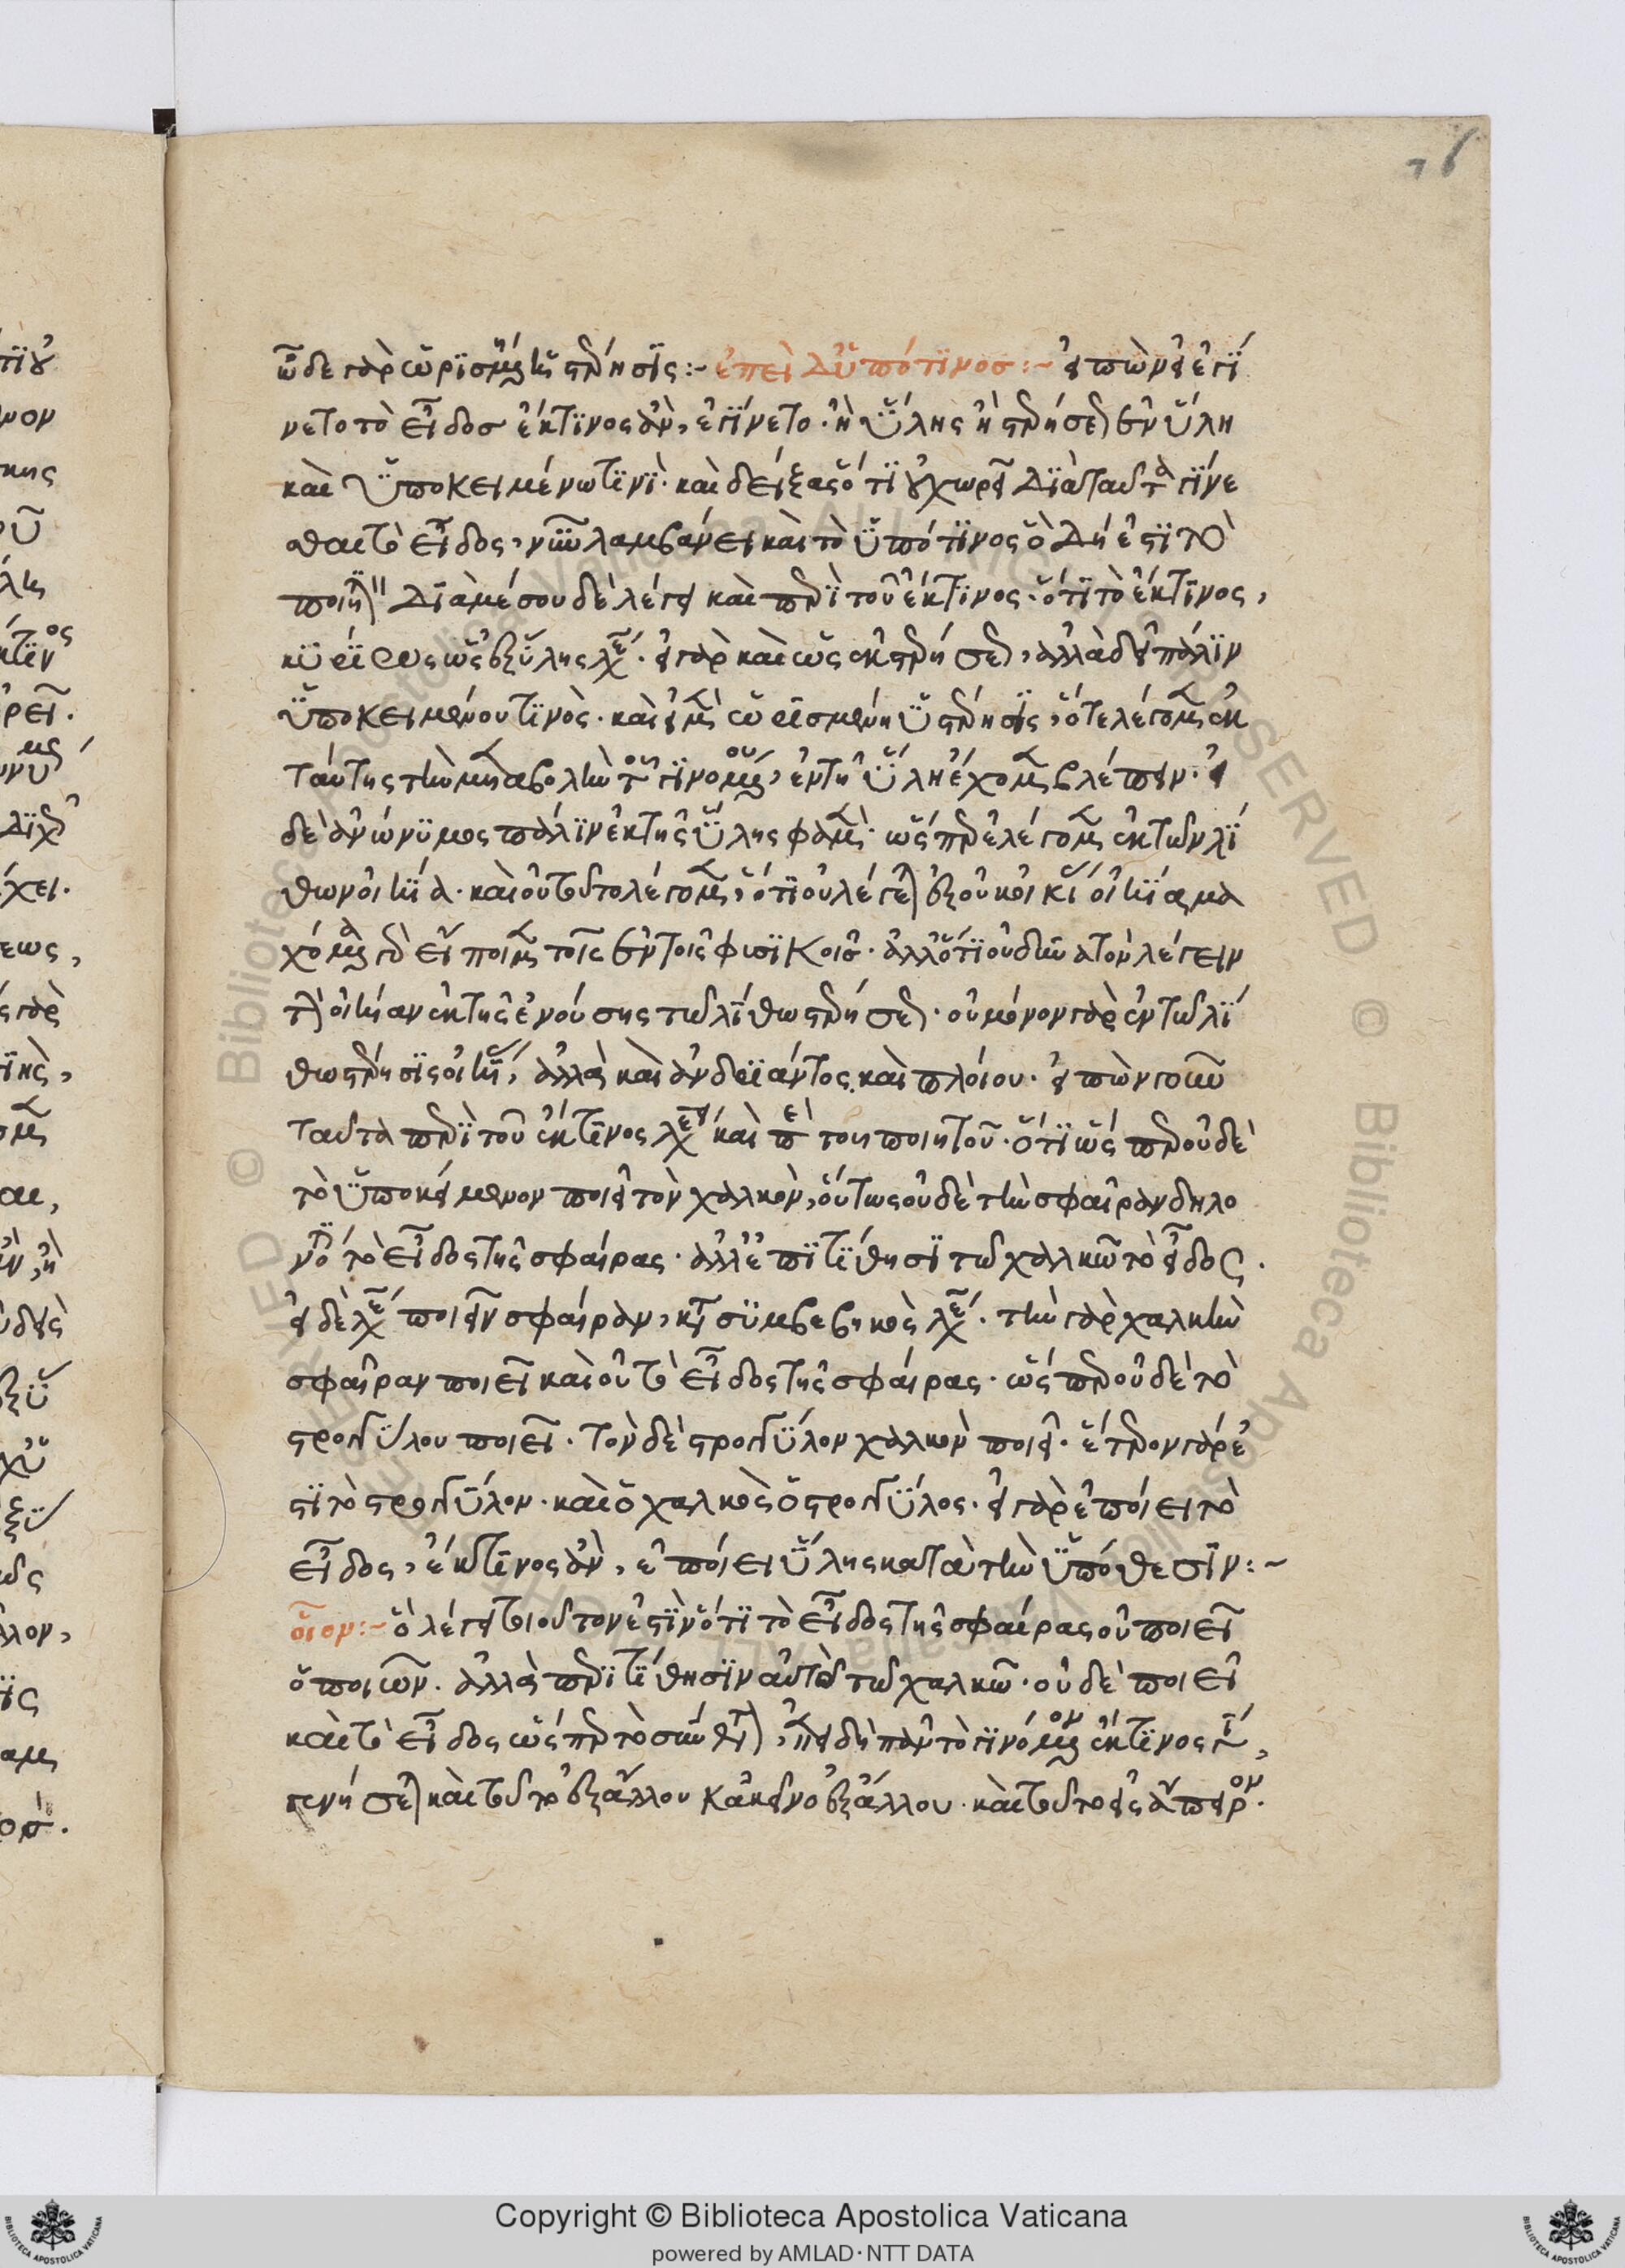 ὧδε γὰρ ὡρισμένη ἡ στέρησις:~ ἐπεὶ δ' ὑπό τινος:~ εἰπὼν εἰ ἐγί
νετο τὸ εἶδος ἔκ τινος ἂν, ἐγίνετο· ἢ ὕλης ἢ στερήσεως ἐν ὕλη
καὶ ὑποκειμένω τινί· καὶ δείξας ὅτι οὐ χωρεῖ διὰ ταῦτα γίνε
σθαι τὸ εἶδος, νῦν λαμβάνει καὶ τὸ ὑπό τινος ὃ δή ἐστι τὸ
ποιητικόν διὰ μέσου δὲ λέγει καὶ περὶ τοῦ ἔκ τινος· ὅτι τὸ ἔκ τινος,
κυρίως ὡς ἐξ ὕλης λέγεται· εἰ γὰρ καὶ ὡς ἐκ στερήσεως, ἀλλὰ δεῖ πάλιν
ὑποκειμένου τινός· καὶ εἰ μὲν ὡρισμένη ἡ στέρησις, ὅτε λέγομεν ἐκ
ταύτης τὴν μεταβολὴν τοῦ γινομένου, ἐν τῆ ὕλη ἔχομεν βλέπειν· εἰ
δὲ ἀνώνυμος πάλιν ἐκ τῆς ὕλης φαμέν· ὥσπερ ἐλέγομεν ἐκ τῶν λί
θων οἰκία· καὶ οὐ τοῦτο λέγομεν, ὅτι οὐ λέγεται ἐξ οὐκ οἰκίας οἰκία μα
χόμεθα γὰρ εἴποιμεν τοῖς ἐν τοῖς φυσικοῖς· ἀλλ' ὅτι οὐ δυνατὸν λέγειν
τὴν οἰκίαν ἐκ τῆς ἐνούσης τῶ λίθω στερήσεως· οὐ μόνον γὰρ ἐν τῶ λί
θω στέρησις οἰκίας, ἀλλὰ καὶ ἀνδριάντος καὶ πλοίου· εἰπὼν γοῦν
ταῦτα περὶ τοῦ ἔκ τινος λέγει καὶ περὶ του ποιητοῦ· ὅτι ὥσπερ οὐδὲ
τὸ ὑποκείμενον ποιεῖ τὸν χαλκὸν, οὕτως οὐδὲ τὴν σφαῖραν δηλο
νότι τὸ εἶδος τῆς σφαίρας· ἀλλ' ἐπιτίθησι τῶ χαλκῶ τὸ εἶδος.
εἰ δὲ λέγεται ποιεῖν σφαῖραν, κατὰ συμβεβηκὸς λέγεται· τὴν γὰρ χαλκὴν
σφαῖραν ποιεῖ καὶ οὐ τὸ εἶδος τῆς σφαίρας· ὥσπερ οὐδὲ τὸ
στρογγύλον ποιεῖ· τὸν δὲ στρογγύλον χαλκὸν ποιεῖ· ἕτερον γάρ ἐ
στι τὸ στρογγύλον· καὶ ὁ χαλκὸς ὁ στρογγύλος· εἰ γὰρ ἐποίει τὸ
εἶδος, ἔκ τινος ἂν, ἐποίει ὕλης κατὰ τὴν ὑπόθεσιν:~
οἷον:~ ὃ λέγει τοιοῦτον ἐστὶν ὅτι τὸ εἶδος τῆς σφαίρας οὐ ποιεῖ
ὁ ποιῶν· ἀλλὰ περιτίθησιν αὐτὸ τῶ χαλκῶ· οὐ δὲ ποιεῖ
καὶ τὸ εἶδος ὥσπερ τὸ σύνθετον, ἐπειδὴ πᾶν τὸ γινόμενον ἔκ τινος γίνεται,
γενήσεται καὶ τοῦτο ἐξ ἄλλου κἀκεῖνο ἐξ ἄλλου· καὶ τοῦτο εἰς ἄπειρον.
Copyright © Biblioteca Apostolica Vaticana
powered by AMLAD·NTT DATA